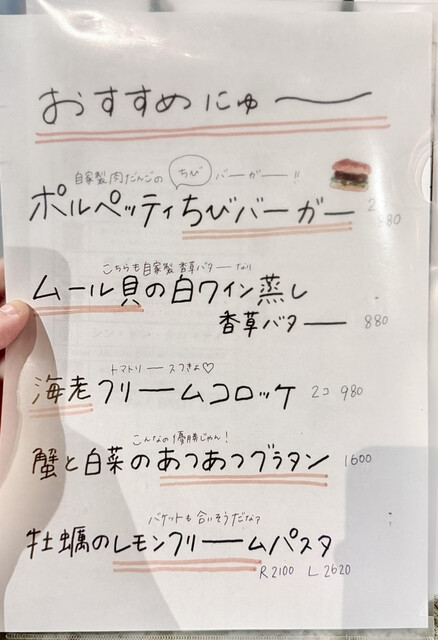 おすすめにゅ〜
自家製肉だんごの ちび バーガー!!
ポルペッティちびバーガー 2コ 980
こちらも自家製香草バターなり
ムール貝の白ワイン蒸し
香草バター 880
トマトソースつきよ♡
海老クリームコロッケ 2コ 980
こんなの優勝じゃん!
蟹と白菜のあつあつグラタン 1600
バケットも合いそうだな?
牡蠣のレモンクリームパスタ
R2100 L2620